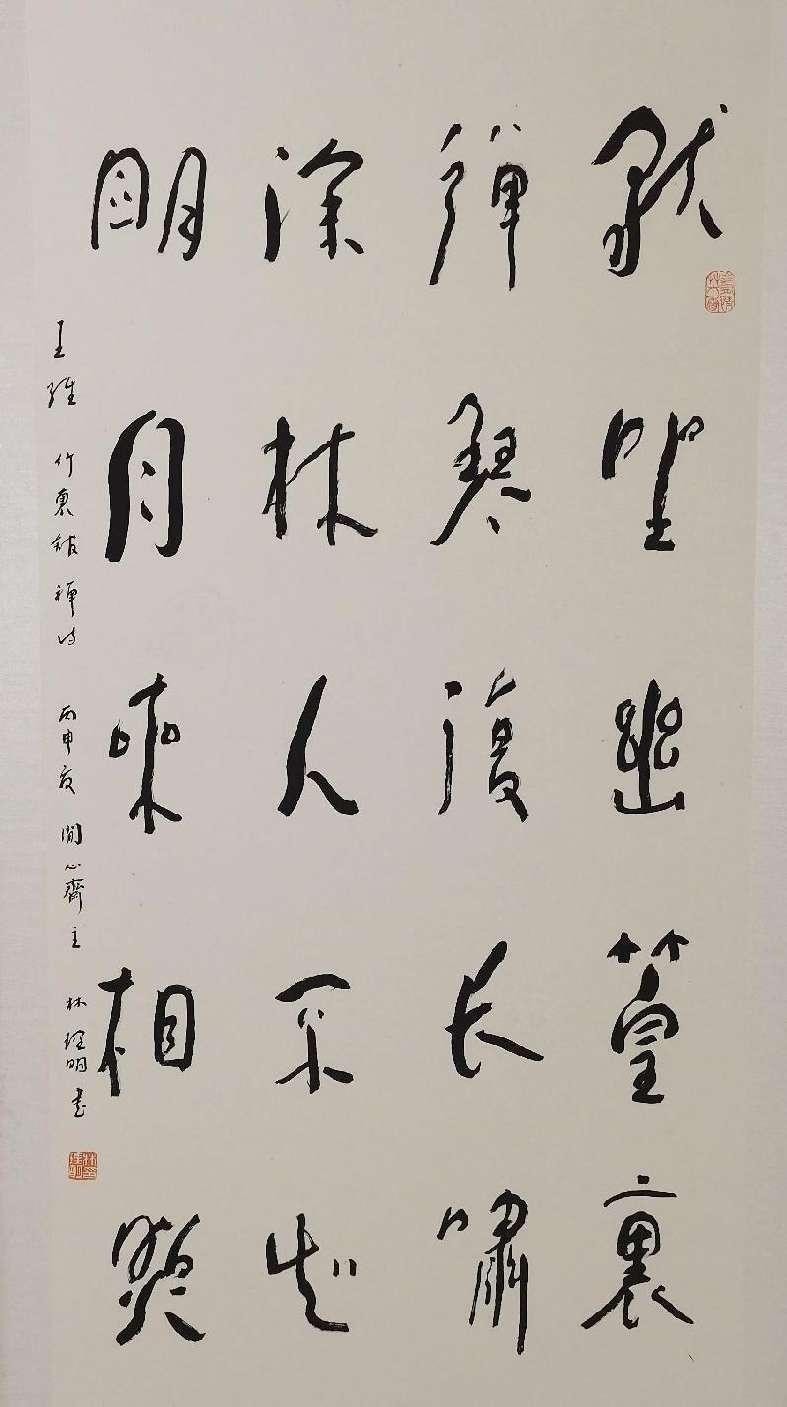 獨坐幽篁裏
彈琴復长嘯
深林人不知
明月來相照
王維 竹裏館禅诗 丙申夏 閒心齋主 林明書